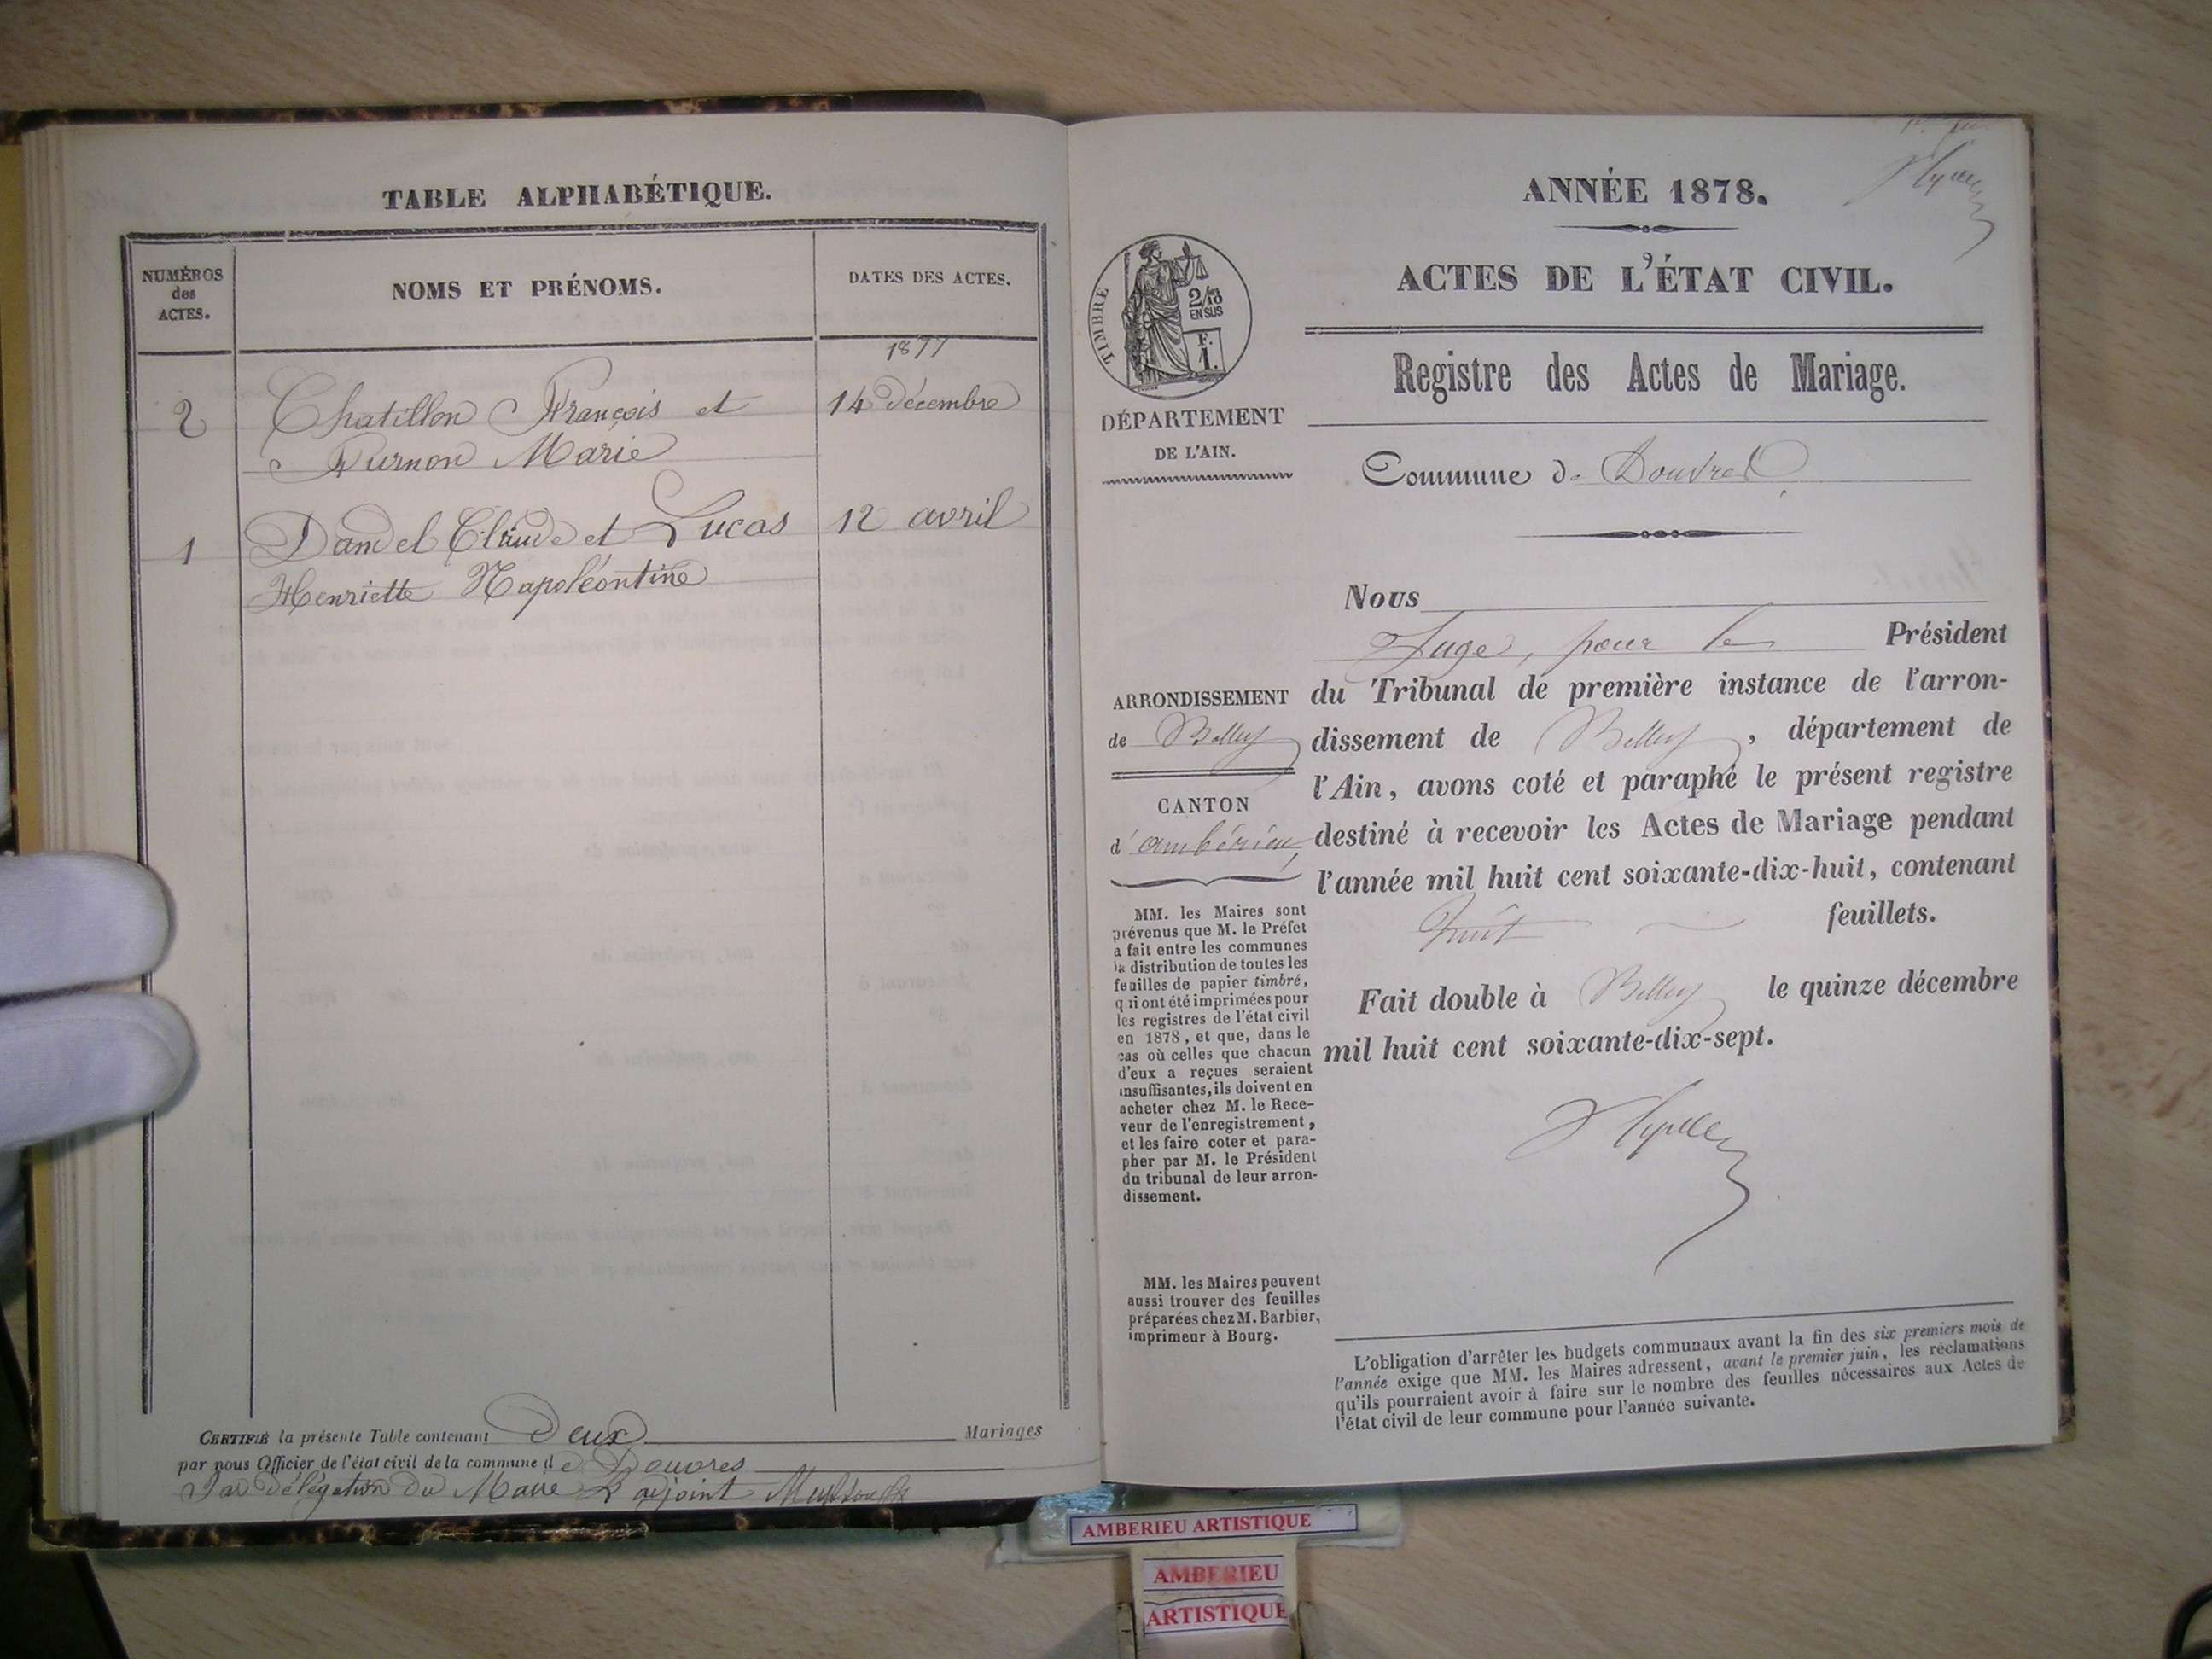 TABLE ALPHABÉTIQUE.
NUMÉROS
des
ACTES.
NOMS ET PRÉNOMS.
DATES DES ACTES.
1877
2 Chatillon François et 14 décembre
Furnon Marie
1 Dandel Claude et Lucas 12 avril
Henriette Napoléontine
CERTIFIÉ la présente Table contenant Deux Mariages
par nous Officier de l'état civil de la commune de Douvres
Par délégation du Maire L'adjoint
ANNÉE 1878.
ACTES DE L'ÉTAT CIVIL.
TIMBRE
2/10
EN SUS
F.
1.
Registre des Actes de Mariage.
DÉPARTEMENT
DE L'AIN.
Commune de Douvres
Nous
Juge, pour le Président
du Tribunal de première instance de l'arron-
dissement de Belley, département de
l'Ain, avons coté et paraphé le présent registre
destiné à recevoir les Actes de Mariage pendant
l'année mil huit cent soixante-dix-huit, contenant
huit feuillets.
Fait double à Belley le quinze décembre
mil huit cent soixante-dix-sept.
ARRONDISSEMENT
de Belley
CANTON
d'ambérieu,
MM. les Maires sont
prévenus que M. le Préfet
a fait entre les communes
la distribution de toutes les
feuilles de papier timbré,
qui ont été imprimées pour
les registres de l'état civil
en 1878, et que, dans le
cas où celles que chacun
d'eux a reçues seraient
insuffisantes, ils doivent en
acheter chez M. le Rece-
veur de l'enregistrement,
et les faire coter et para-
pher par M. le Président
du tribunal de leur arron-
dissement.
MM. les Maires peuvent
aussi trouver des feuilles
préparées chez M. Barbier,
imprimeur à Bourg.
L'obligation d'arrêter les budgets communaux avant la fin des six premiers mois de
l'année exige que MM. les Maires adressent, avant le premier juin, les réclamations
qu'ils pourraient avoir à faire sur le nombre des feuilles nécessaires aux Actes de
l'état civil de leur commune pour l'année suivante.
AMBERIEU ARTISTIQUE
AMBERIEU
ARTISTIQUE